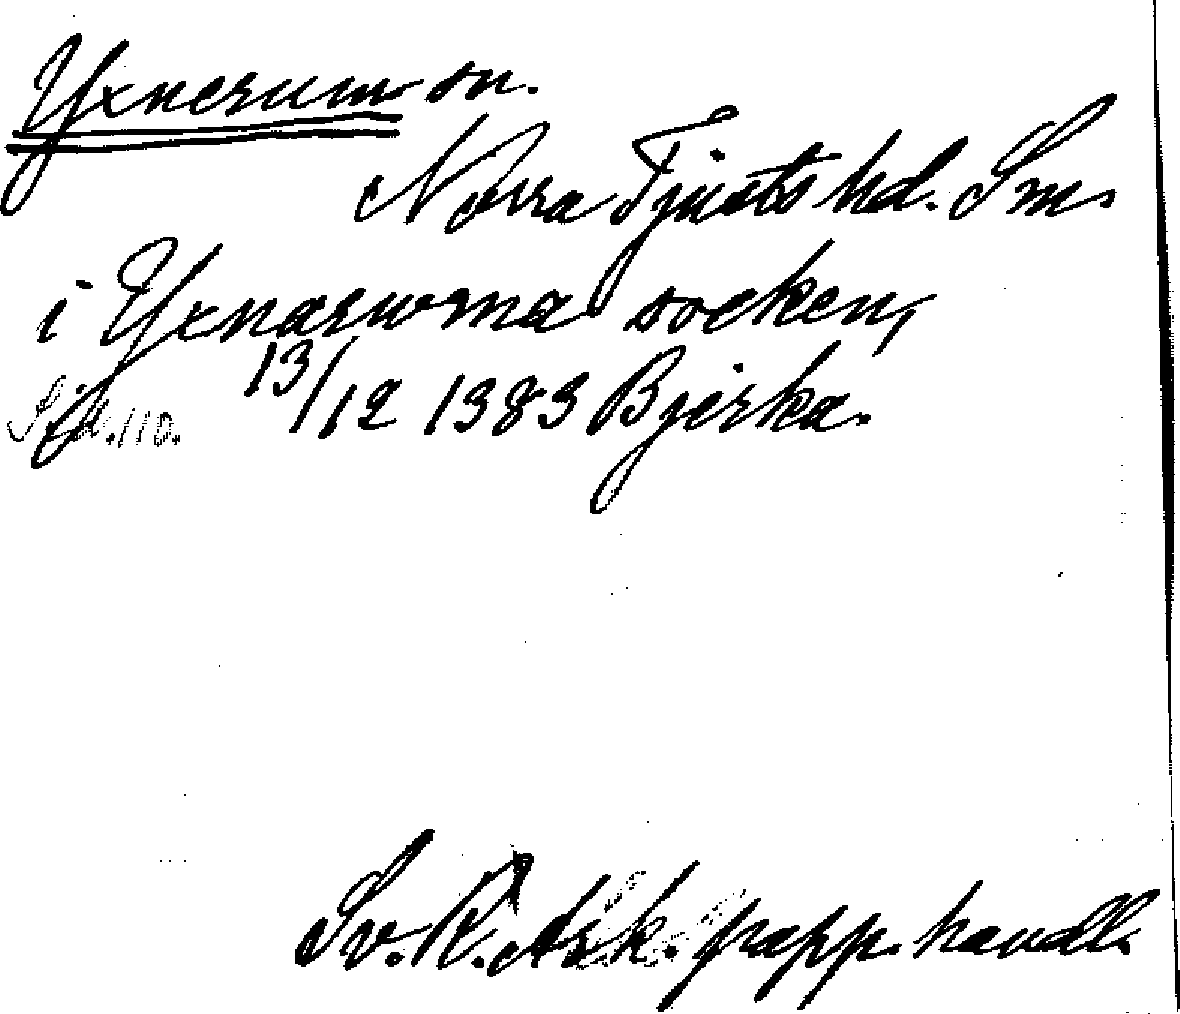 Yxnerum sn.
Norra Tjusts hd. Sm.
i Yxnarwma socken,
13/12 1383 Bjerka.
Sv. R. Ark. papp. handl.